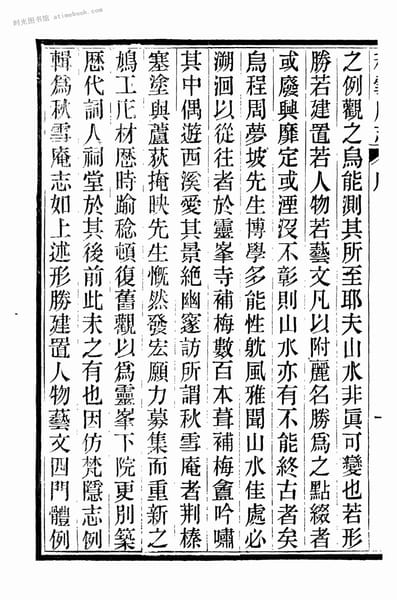 时光图书馆 - atimebook.com
之例觀之烏能測其所至耶夫山水非眞可變也若形
勝若建置若人物若藝文凡以附麗名勝爲之點綴者
或廢興靡定或湮沒不彰則山水亦有不能終古者矣
烏程周夢坡先生博學多能性躭風雅聞山水佳處必
溯洄以從往者於靈峯寺補梅數百本葺補梅盦吟嘯
其中偶遊西溪愛其景絶幽邃訪所謂秋雪庵者荆榛
塞塗與蘆荻掩映先生慨然發宏願力募集而重新之
鳩工庀材歷時踰稔頓復舊觀以爲靈峯下院更別築
歷代詞人祠堂於其後前此未之有也因仿梵隱志例
輯爲秋雪庵志如上述形勝建置人物藝文四門體例